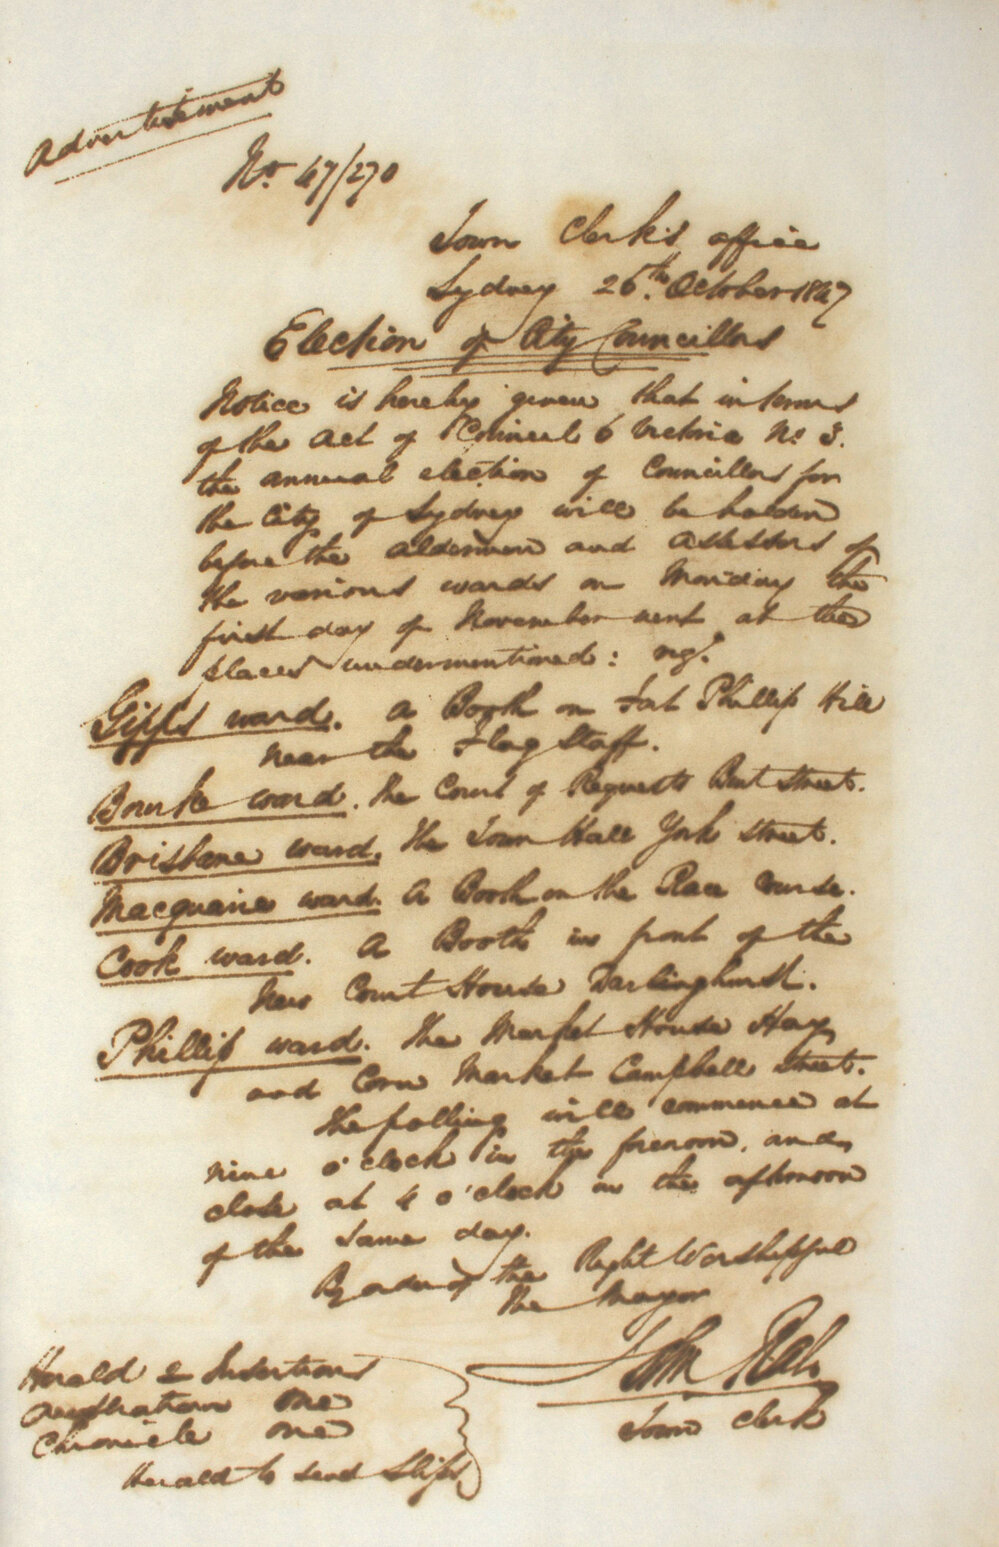 Advertisement
No. 47/270
Town Clerk's office
Sydney 26th October 1847
Election of City Councillors
Notice is hereby given that in terms
of the Act of Council 6 Victoria No 3.
the annual election of Councillors for
the City of Sydney will be holden
before the Aldermen and Assessors of
the various wards on Monday the
first day of November next at the
places undermentioned:
Gipps ward. A Booth on Fort Phillip Hill
near the Flag Staff.
Bourke ward. The Court of Requests Bent Street.
Brisbane ward. The Town Hall York Street.
Macquarie ward. A Booth on the Race Course.
Cook ward. A Booth in front of the
New Court House Darlinghurst.
Phillip ward. The Market House Hay
and Corn Market Campbell Street.
The polling will commence at
nine o'clock in the forenoon, and
close at 4 o'clock in the afternoon
of the same day.
By order of the Right Worshipful
the Mayor
John Rae
Town Clerk
Herald 2 Insertions
Australian One
Chronicle One
Herald to send Slips